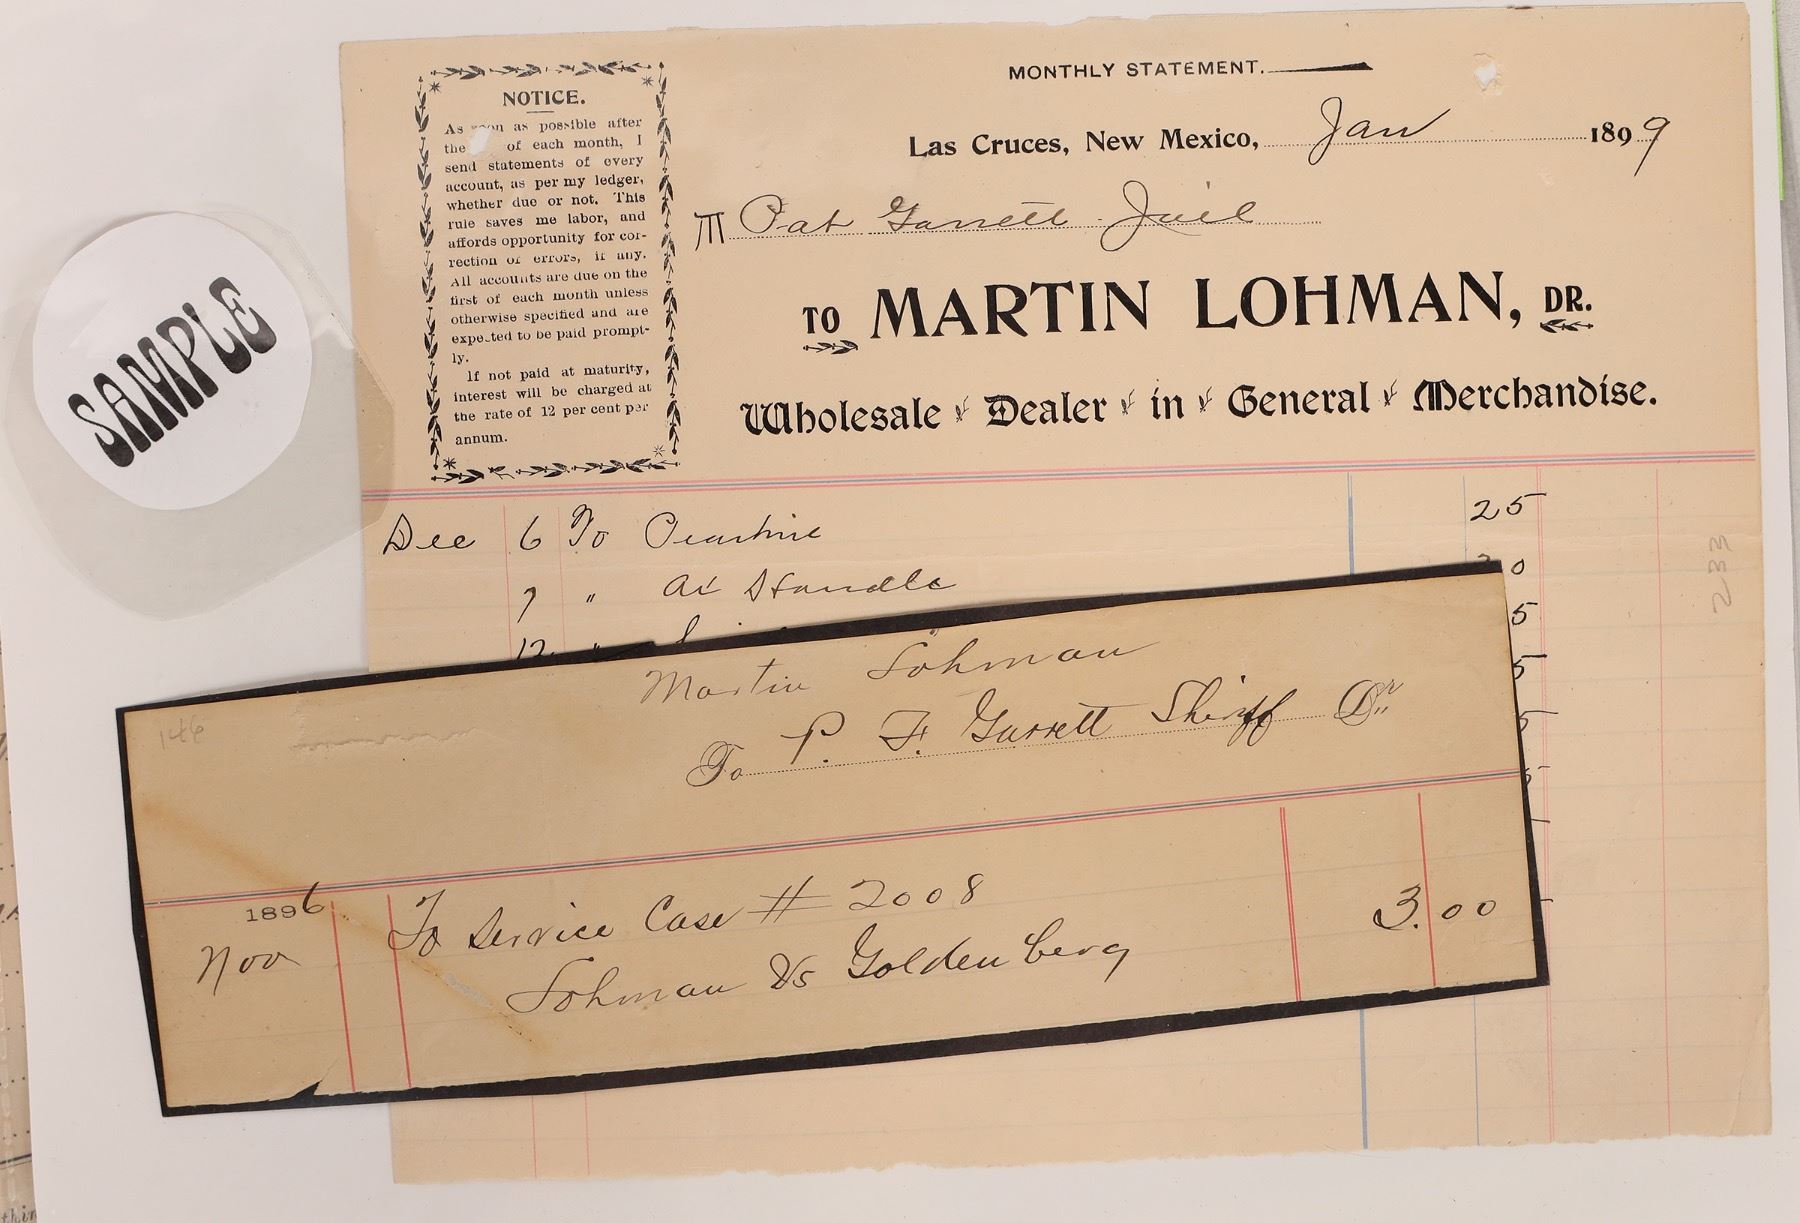 MONTHLY STATEMENT.
Las Cruces, New Mexico, Jan 1899
M Pat Garrett Jail
TO MARTIN LOHMAN, DR.
Wholesale Dealer in General Merchandise.
NOTICE.
As soon as possible after
the of each month, I
send statements of every
account, as per my ledger,
whether due or not. This
rule saves me labor, and
affords opportunity for cor-
rection of errors, if any.
All accounts are due on the
first of each month unless
otherwise specified and are
expected to be paid prompt-
ly.
If not paid at maturity,
interest will be charged at
the rate of 12 per cent per
annum.
SAMPLE
Dec 6 To Pearline 25
7 " Ax Handle 0
12 "
5
5
5
5
233
146
Martin Lohman
To P. F. Garrett Sheriff Dr
1896
Nov To Service Case # 2008 3.00
Lohman Vs Goldenberg